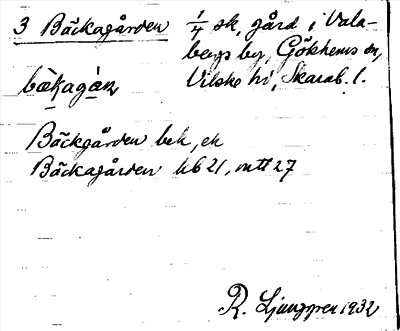 3 Bäckagården 1/4 sk, gård i Vala-
bergs by, Gökhems sn,
Vilske hd, Skarab. l.
bækagán
Bäckgården bek, ek
Bäckagården hb 21, mtt 27
R. Ljunggren 1932